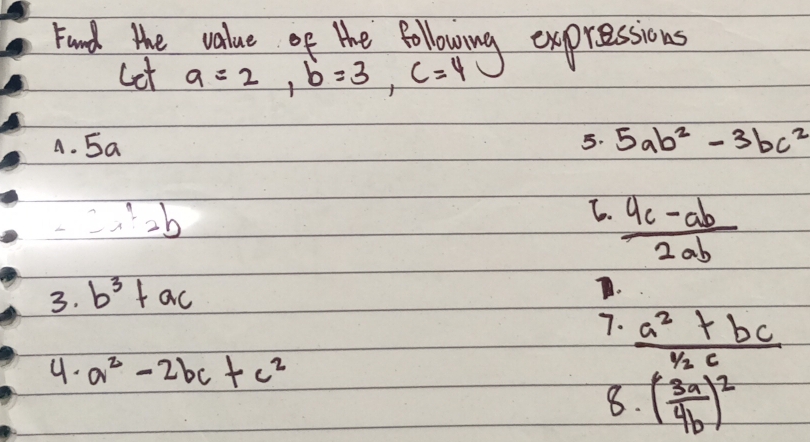 Find the value of the following expressions
Let a = 2 , b = 3 , c = 4
1. 5a
b
3. b³ + ac
4. a² - 2bc + c²
5. 5ab² - 3bc²
6. 4c - ab
2ab
7. a² + bc
1/2 c
8. (3a/4b)²